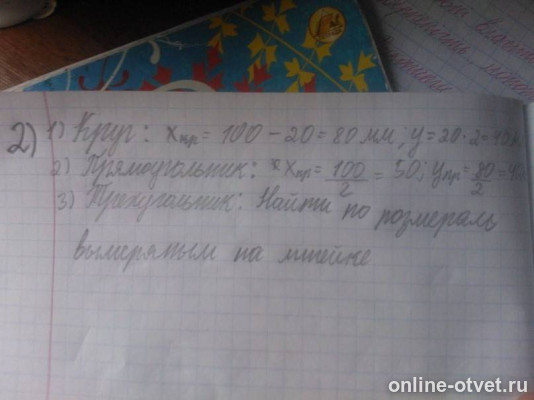 2) 1) Круг: Xпр = 100 - 20 = 80 мм, y = 20 · 2 = 40
2) Прямоугольник: Xпр = 100/2 = 50; Yпр = 80/2 = 40
3) Треугольник: Найти по размераль
вымеряным на линейке
online-otvet.ru